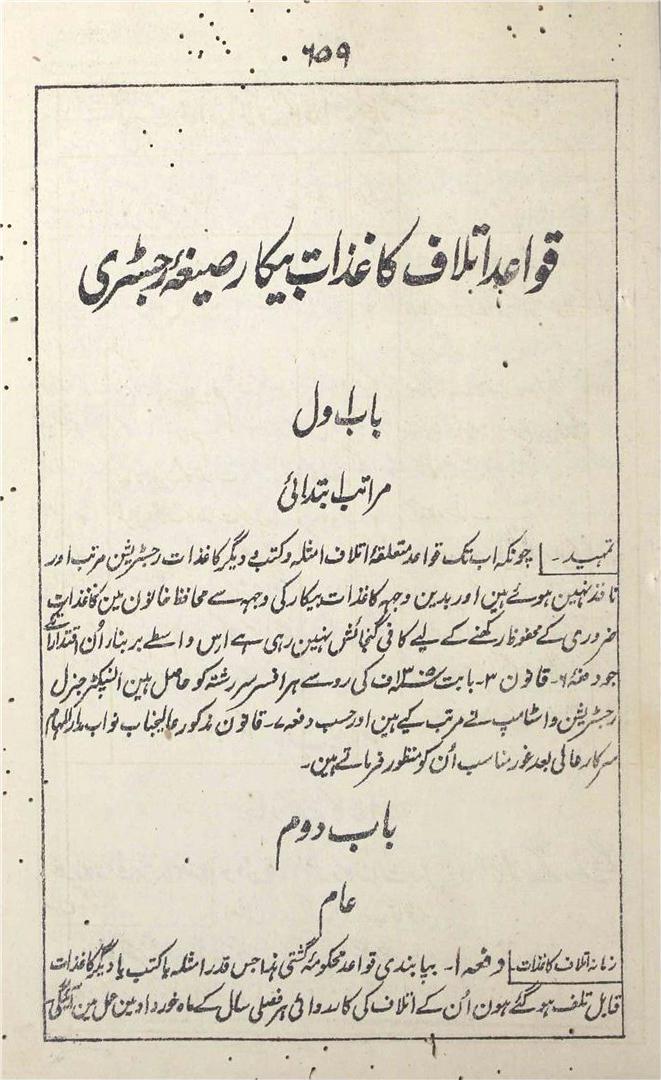 ۶۵۹
قواعد اتلاف کاغذات بیکار صیغۂ رجسٹری
باب اول
مراتب ابتدائی
تمہید۔ چونکہ اب تک قواعد متعلقۂ اتلاف امثلہ و کتب و دیگر کاغذات رجسٹریشن مرتب اور
نافذ نہین ہوئے ہین اور بدین وجہہ کاغذات بیکار کی وجہہ سے محافظ خانون مین کاغذات
ضروری کے محفوظ رکھنے کے لیے کافی گنجائش نہین رہی ہے اس واسطے بر بناء اُن اقتدارات کے
جو دفعۂ ۶۔ قانون ۳۔ بابت ۱۳۰۵ف کی روسے ہر افسر سررشتہ کو حاصل ہین انسپکٹر جنرل
رجسٹریشن و اسٹامپ نے مرتب کیے ہین اور حسب دفعہ ۷۔ قانون مذکور عالیجناب نواب مدار المہام
سرکار عالی بعد غور مناسب اُن کو منظور فرماتے ہین۔
باب دوم
عام
زمانۂ اتلاف کاغذات دفعہ ۱۔ بپابندی قواعد محکومۂ گشتی ہٰذا جس قدر امثلہ یا کتب یا دیگر کاغذات
قابل تلف ہوگئے ہون اُن کے اتلاف کی کارروائی ہر فصلی سال کے ماہ خورداد مین عمل مین